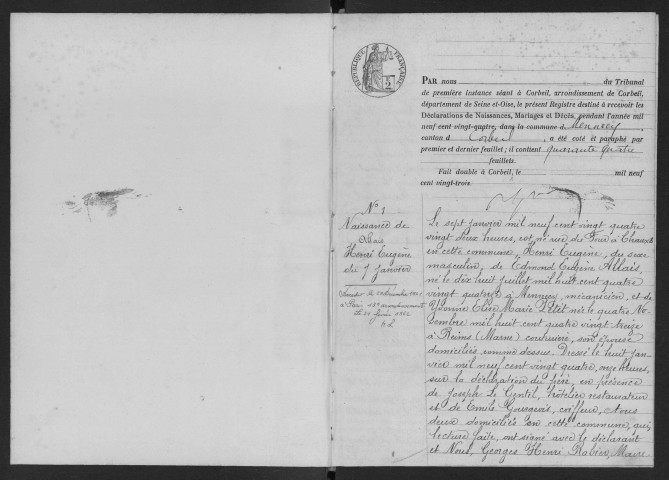 RÉPUBLIQUE FRANÇAISE
2
PAR nous du Tribunal
de première instance séant à Corbeil, arrondissement de Corbeil,
département de Seine-et-Oise, le présent Registre destiné à recevoir les
Déclarations de Naissances, Mariages et Décès, pendant l'année mil
neuf cent vingt-quatre, dans la commune d Mennecy,
canton d Corbeil, a été coté et paraphé par
premier et dernier feuillet; il contient quarante quatre
feuillets.
Fait double à Corbeil, le mil neuf
cent vingt-trois.
N° 1
Naissance de
Allais
Henri Eugène
du 7 janvier
Le sept janvier mil neuf cent vingt quatre
vingt deux heures, est né rue du Four à Chaux
en cette commune, Henri Eugène, du sexe
masculin, de Edmond Eugène Allais,
né le dix huit juillet mil huit cent quatre
vingt quatorze à Mennecy, mécanicien, et de
Yvonne Marie Petit née le quatre No-
vembre mil huit cent quatre vingt treize
à Reims (Marne) couturière, son épouse
domiciliés comme dessus. Dressé le huit jan-
vier mil neuf cent vingt quatre, onze heures,
sur la déclaration du père, en présence
de Joseph Le Gentil, hôtelier restaurateur
et de Emile Bourgeois, coiffeur, tous
deux domiciliés en cette commune, qui,
lecture faite, ont signé avec le déclarant
et Nous, Georges Henri Rabier, Maire